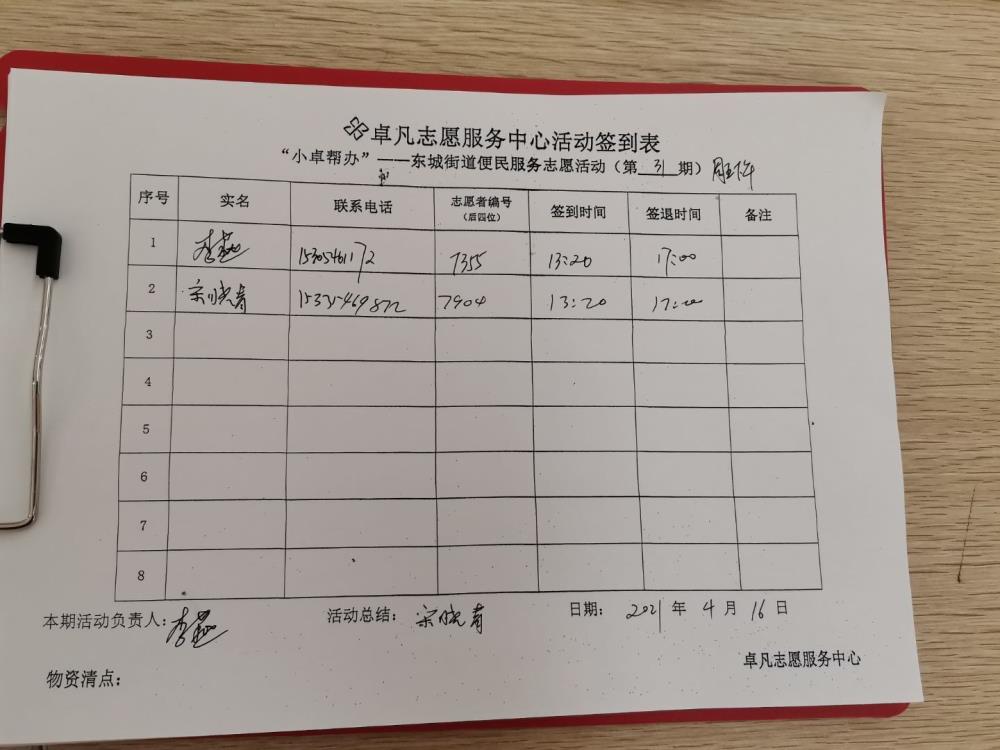 卓凡志愿服务中心活动签到表
“小卓帮办”——东城街道便民服务志愿活动（第 31 期）周五下午
序号 实名 联系电话 志愿者编号（后四位） 签到时间 签退时间 备注
1 李 15305461172 7355 13:20 17:00
2 宋晓青 7904 13:20 17:00
3
4
5
6
7
8
本期活动负责人：李 活动总结：宋晓青 日期：2021 年 4 月 16 日
卓凡志愿服务中心
物资清点：